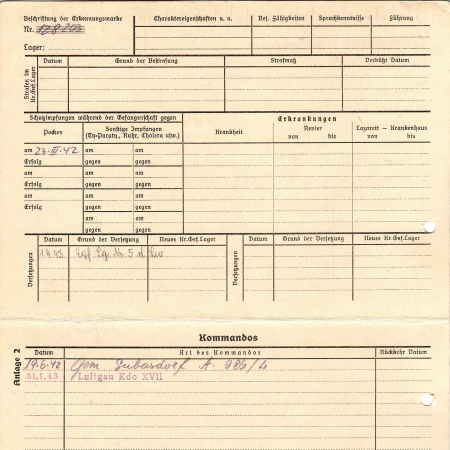 Beschriftung der Erkennungsmarke
Nr. 128203
Lager:
Charaktereigenschaften u. a.
Bes. Fähigkeiten
Sprachkenntnisse
Führung
Strafen im Kr.Gef.Lager
Datum
Grund der Bestrafung
Strafmaß
Verbüßt Datum
Schutzimpfungen während der Gefangenschaft gegen
Erkrankungen
Pocken
Sonstige Impfungen
(Ty-Paraty., Ruhr, Cholera usw.)
Krankheit
Revier
von bis
Lazarett – Krankenhaus
von bis
am 23.III.42 am am
Erfolg gegen gegen
am am am
Erfolg gegen gegen
am am am
Erfolg gegen gegen
am am
gegen gegen
Versetzungen
Datum
Grund der Versetzung
Neues Kr.Gef.Lager
Versetzungen
Datum
Grund der Versetzung
Neues Kr.Gef.Lager
1.4.43. Kgf. Lg. Nr. 5 d. Lw
Anlage 2
Kommandos
Datum
Art des Kommandos
Rückkehr Datum
19.6.42 Gem. A. 986/L
31.1.43 Luftgau Kdo XVII